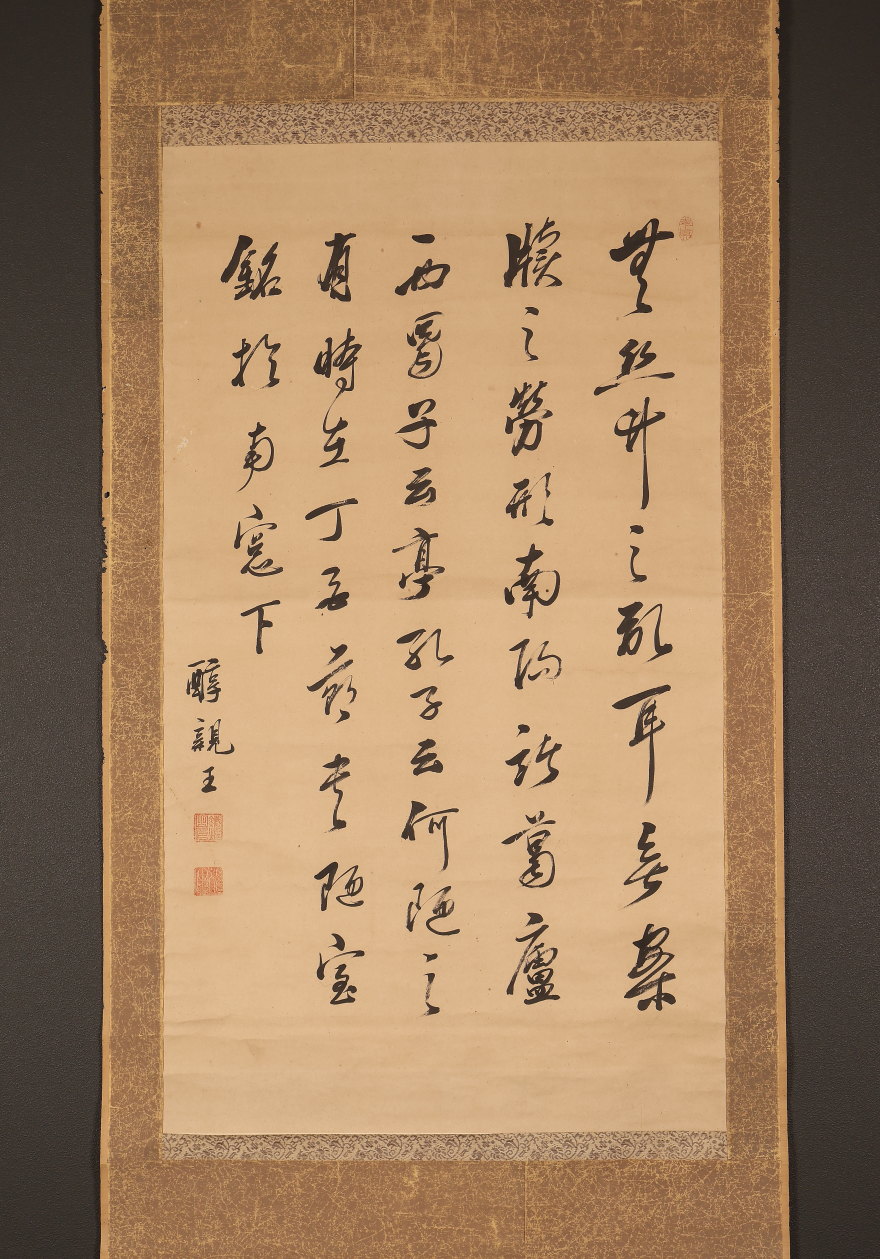 無絲竹之亂耳無案
牘之勞形南陽諸葛廬
西蜀子云亭孔子云何陋之
有時在丁書陋室
銘於南窓下
醇親王